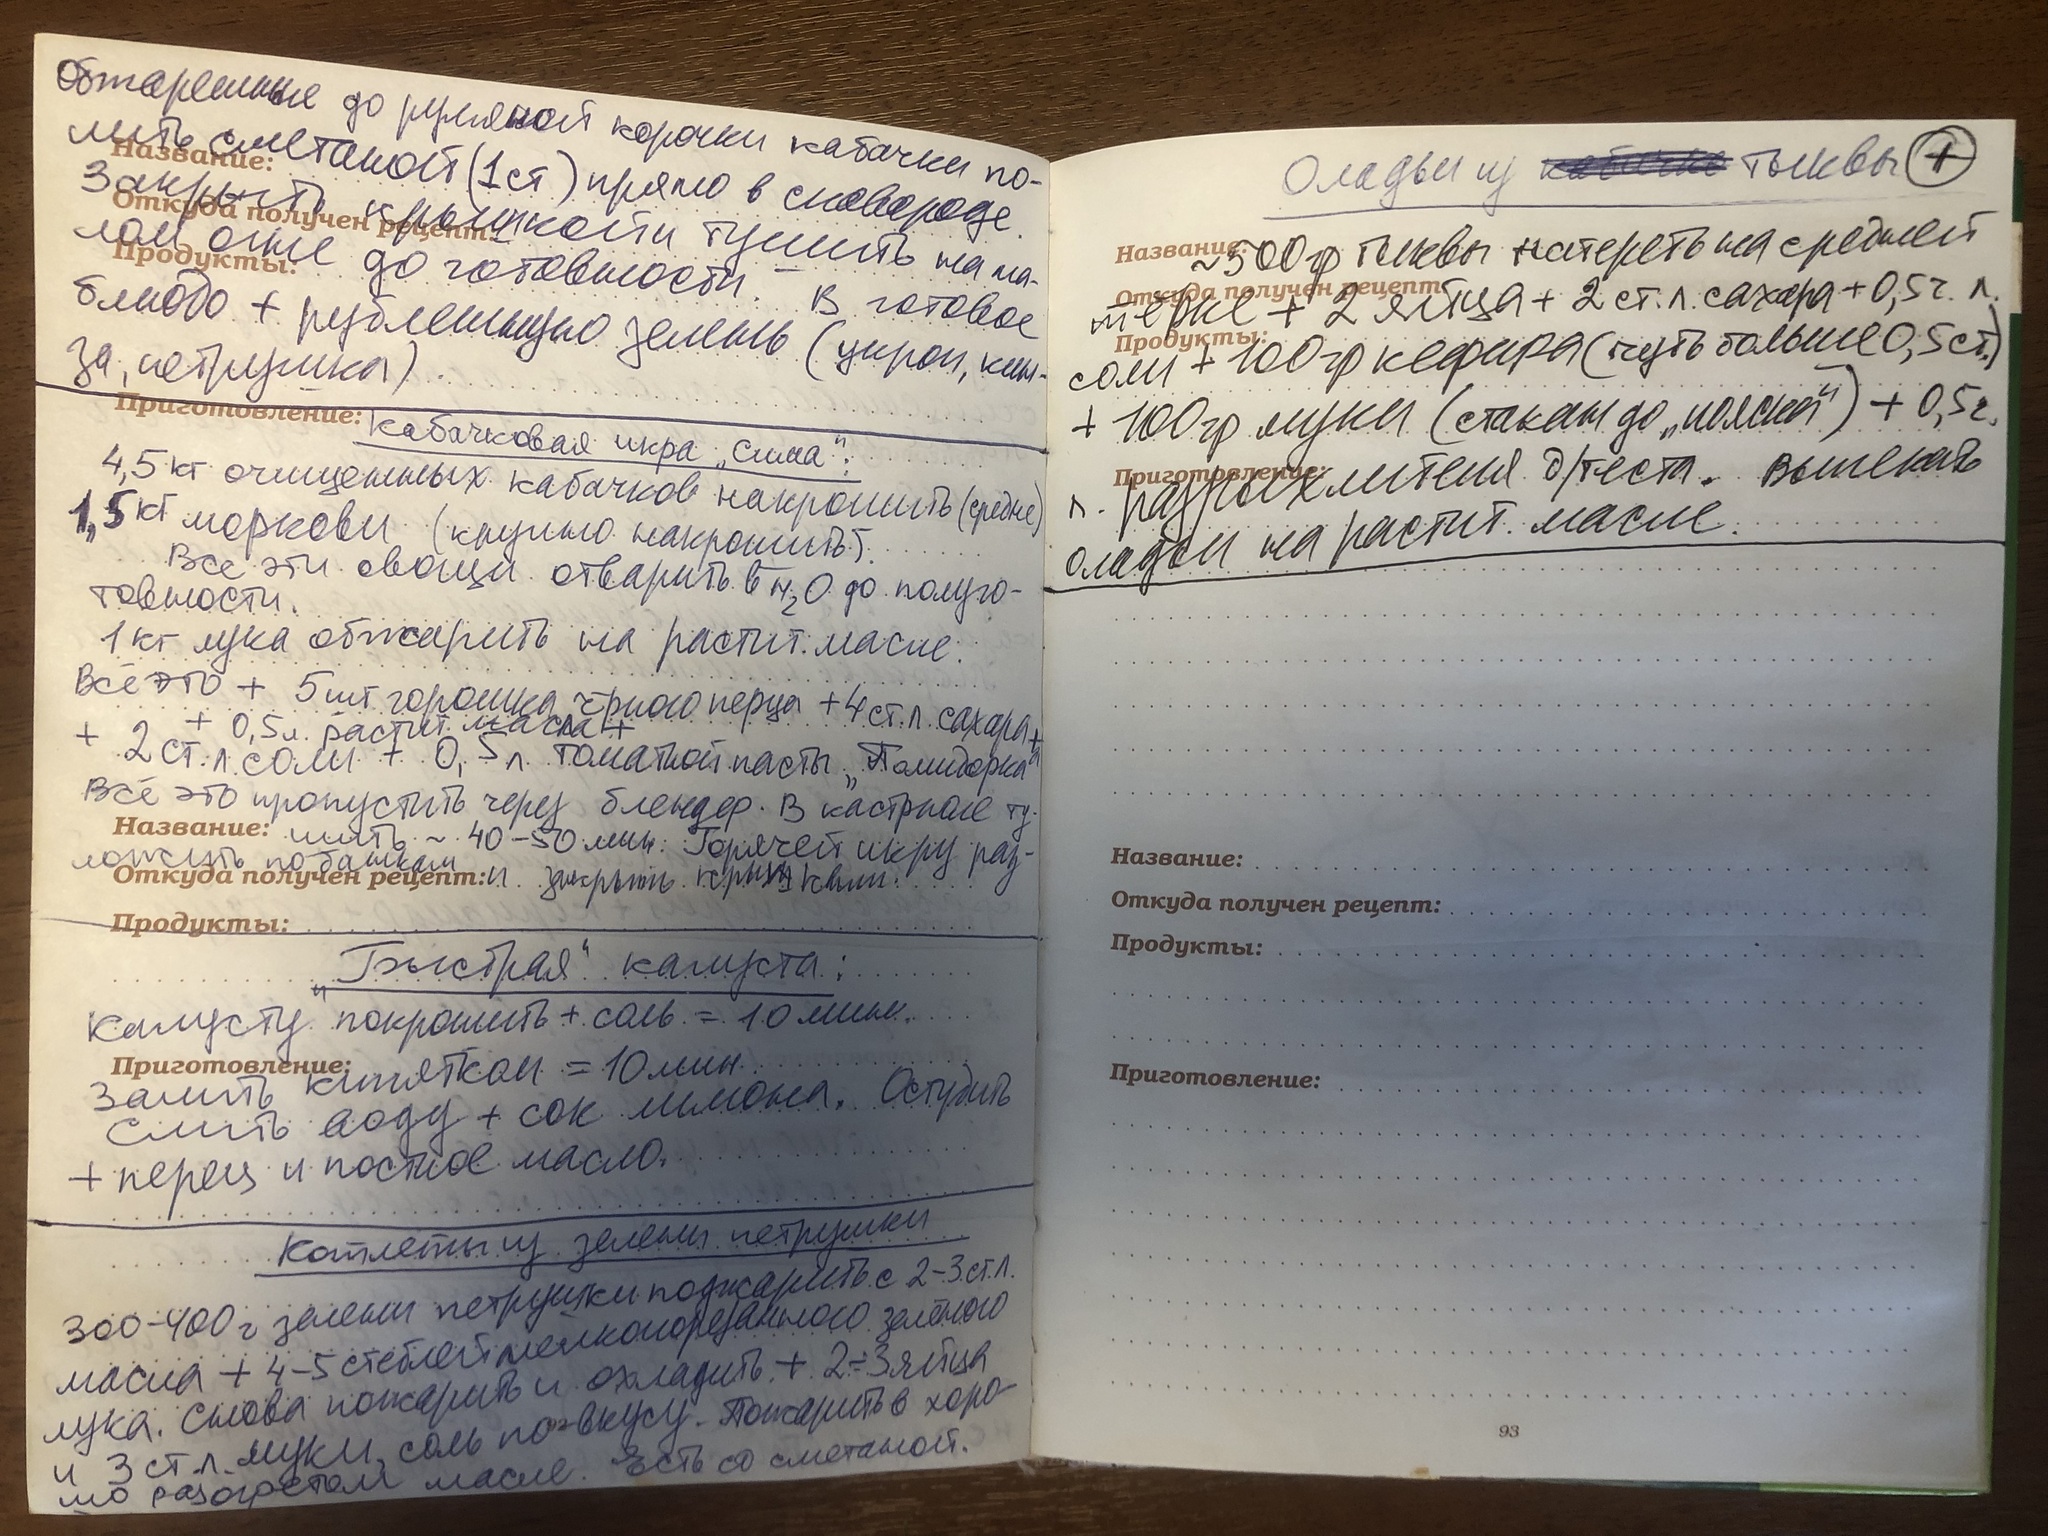 Обжаренные до румяной корочки кабачки по-
лить сметаной (1 ст) прямо в сковороде.
Название:
Закрыть крышкой и тушить на ма-
Откуда получен рецепт:
лом огне до готовности. В готовое
Продукты:
блюдо + рубленную зелень (укроп, кин-
за, петрушка).
Приготовление:
Кабачковая икра „Сима“:
4,5 кг очищенных кабачков накрошить (средне)
1,5 кг моркови (крупно накрошить).
Все эти овощи отварить в H2O до полуго-
товности.
1 кг лука обжарить на растит. масле.
Всё это + 5 шт горошка чёрного перца + 4 ст. л. сахара +
+ 0,5 л. растит. масла +
+ 2 ст. л. соли + 0,5 л томатной пасты „Помидорка“
Всё это пропустить через блендер. В кастрюле ту-
Название:
шить ~ 40-50 мин. Горячей икру раз-
ложить по банкам
Откуда получен рецепт:
и закрыть крышками.
Продукты:
„Быстрая“ капуста:
Капусту покрошить + соль = 10 мин.
Приготовление:
Залить кипятком = 10 мин
Слить воду + сок лимона. Остудить
+ перец и постное масло.
Котлеты из зелени петрушки
300-400 г зелени петрушки поджарить с 2-3 ст. л.
масла + 4-5 стеблей мелкопорезанного зелёного
лука. Снова пожарить и охладить + 2-3 яйца
и 3 ст. л. муки, соль по вкусу. Пожарить в хоро-
шо разогретом масле. Есть со сметаной.
Оладьи из кабачков тыквы +
Название:
~500 гр тыквы натереть на средней
Откуда получен рецепт:
тёрке + 2 яйца + 2 ст. л. сахара + 0,5 ч. л.
Продукты:
соли + 100 гр кефира (чуть больше 0,5 ст.)
+ 100 гр муки (стакан до „пояска“) + 0,5 ч.
Приготовление:
л. разрыхлителя д/теста. Выпекать
оладьи на растит. масле.
Название:
Откуда получен рецепт:
Продукты:
Приготовление:
93